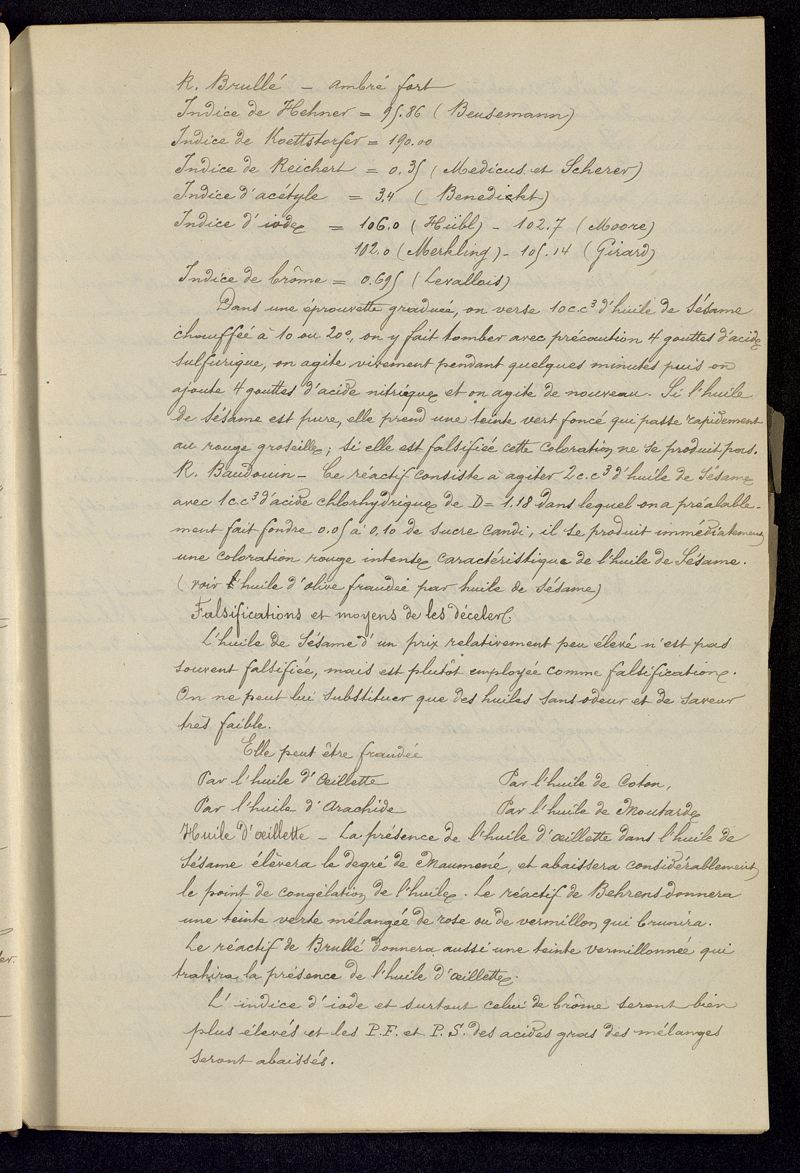 R. Brullé – ambré fort
Indice de Hehner = 95.86 (Bensemann)
Indice de Koettstorfer = 190.00
Indice de Reichert = 0.35 (Medicus et Scherer)
Indice d'acétyle = 3.4 (Benedickt)
Indice d'iode = 106.0 (Hübl) – 102.7 (Moore)
102.0 (Merkling) – 105.14 (Girard)
Indice de brôme = 0.695 (Levallois)
Dans une éprouvette graduée, on verse 10 c.c³ d'huile de Sésame
chauffée à 10 ou 20°, on y fait tomber avec précaution 4 gouttes d'acide
sulfurique, on agite vivement pendant quelques minutes puis on
ajoute 4 gouttes d'acide nitrique et on agite de nouveau. Si l'huile
de Sésame est pure, elle prend une teinte vert foncé qui passe rapidement
au rouge groseille; si elle est falsifiée cette coloration ne se produit pas.
R. Baudouin – Ce réactif consiste à agiter 2 c.c³ d'huile de Sésame
avec 1 c.c³ d'acide chlorhydrique de D = 1.18 dans lequel on a préalable-
ment fait fondre 0.05 à 0,10 de sucre candi, il se produit immédiatement
une coloration rouge intense caractéristique de l'huile de Sésame.
(voir l'huile d'olive fraudée par huile de Sésame)
Falsifications et moyens de les déceler.
L'huile de Sésame d'un prix relativement peu élevé n'est pas
souvent falsifiée, mais est plutôt employée comme falsification.
On ne peut lui substituer que des huiles sans odeur et de saveur
très faible.
Elle peut être fraudée
Par l'huile d'Œillette Par l'huile de Coton,
Par l'huile d'Arachide Par l'huile de Moutarde
Huile d'œillette – La présence de l'huile d'œillette dans l'huile de
Sésame élèvera le degré de Maumené, et abaissera considérablement
le point de congélation de l'huile. Le réactif de Behrens donnera
une teinte verte mélangée de rose ou de vermillon qui brunira.
Le réactif de Brullé donnera aussi une teinte vermillonnée qui
trahira la présence de l'huile d'œillette.
L'indice d'iode et surtout celui de brôme seront bien
plus élevés et les P.F. et P.S. des acides gras des mélanges
seront abaissés.